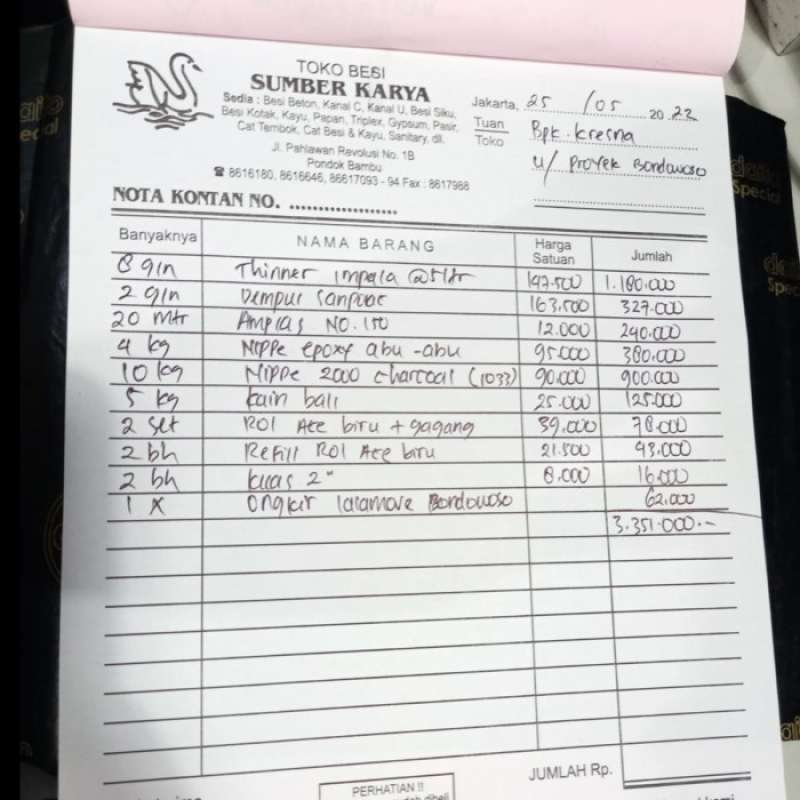 TOKO BESI
SUMBER KARYA
Sedia : Besi Beton, Kanal C, Kanal U, Besi Siku,
Besi Kotak, Kayu, Papan, Triplex, Gypsum, Pasir,
Cat Tembok, Cat Besi & Kayu, Sanitary, dll.
Jl. Pahlawan Revolusi No. 1B
Pondok Bambu
☎ 8616180, 8616646, 86617093 - 94 Fax : 8617988
Jakarta, 25 / 05 20 22
Tuan Toko Bpk. Kresna
u/ Proyek Bondowoso
NOTA KONTAN NO. ..................
Banyaknya NAMA BARANG Harga Satuan Jumlah
8 gln Thinner impala @5 ltr 147.500 1.180.000
2 gln Dempul Sanpolac 163.500 327.000
20 mtr Amplas NO. 150 12.000 240.000
4 kg Nippe epoxy abu-abu 95.000 380.000
10 kg Nippe 2000 charcoal (1033) 90.000 900.000
5 kg kain bali 25.000 125.000
2 set ROl Ace biru + gagang 39.000 78.000
2 bh Refill ROl Ace biru 21.500 43.000
2 bh kuas 2" 8.000 16.000
1 x Ongkir lalamove Bondowoso 62.000
3.351.000.-
JUMLAH Rp.
PERHATIAN !!
Special
Special